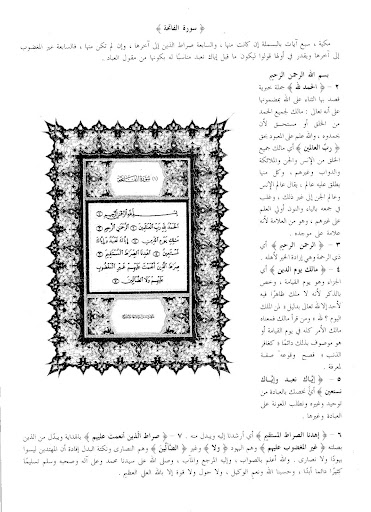 ﴿ سورة الفاتحة ﴾
مكية ، سبع آيات بالبسملة إن كانت منها ، والسابعة صراط الذين إلى آخرها ، وإن لم تكن منها ، فالسابعة غير المغضوب
إلى آخرها ويقدر في أولها قولوا ليكون ما قبل إياك نعبد مناسبًا له بكونها من مقول العباد .
بسم الله الرحمن الرحيم
٢ - ﴿ الحمد لله ﴾ جملة خبرية
قصد بها الثناء على الله بمضمونها
على أنه تعالى : مالك لجميع الحمد
من الخلق أو مستحق لأن
يحمدوه ، والله علم على المعبود بحق
﴿ ربِّ العالمين ﴾ أي مالك جميع
الخلق من الإنس والجن والملائكة
والدواب وغيرهم ، وكل منها
يطلق عليه عالم ، يقال عالم الإنس
وعالم الجن إلى غير ذلك ، وغلب
في جمعه بالياء والنون أولي العلم
على غيرهم ، وهو من العلامة لأنه
علامة على موجده .
٣ - ﴿ الرحمن الرحيم ﴾ أي
ذي الرحمة وهي إرادة الخير لأهله .
٤ - ﴿ مالك يوم الدين ﴾ أي
الجزاء وهو يوم القيامة ، وخص
بالذكر لأنه لا ملك ظاهرًا فيه
لأحد إلا لله تعالى بدليل « لمن الملك
اليوم ؟ لله » ومن قرأ مالك فمعناه
مالك الأمر كله في يوم القيامة أو
هو موصوف بذلك دائمًا « كغافر
الذنب » فصح وقوعه صفة
لمعرفة .
٥ - ﴿ إيَّاك نعبد وإيَّاك
نستعين ﴾ أي نخصك بالعبادة من
توحيد وغيره ونطلب المعونة على
العبادة وغيرها .
(١) سورة الفاتحة
بسم الله الرحمن الرحيم ١
الحمد لله رب العالمين ٢ الرحمن الرحيم ٣
مالك يوم الدين ٤ إياك نعبد وإياك
نستعين ٥ اهدنا الصراط المستقيم ٦
صراط الذين أنعمت عليهم غير المغضوب
عليهم ولا الضالين ٧
٦ - ﴿ إهدنا الصراط المستقيم ﴾ أي أرشدنا إليه ويبدل منه . ٧ - ﴿ صراط الَّذين أنعمت عليهم ﴾ بالهداية ويبدَّل من الذين
بصلته ﴿ غير المغضوب عليهم ﴾ وهم اليهود ﴿ ولا ﴾ وغير ﴿ الضالِّين ﴾ وهم النصارى ونكتة البدل إفادة أن المهتدين ليسوا
يهودًا ولا نصارى . والله أعلم بالصواب ، وإليه المرجع والمآب ، وصلى الله على سيدنا محمد وعلى آله وصحبه وسلم تسليمًا
كثيرًا دائمًا أبدًا ، وحسبنا الله ونعم الوكيل ، ولا حول ولا قوة إلا بالله العلي العظيم .